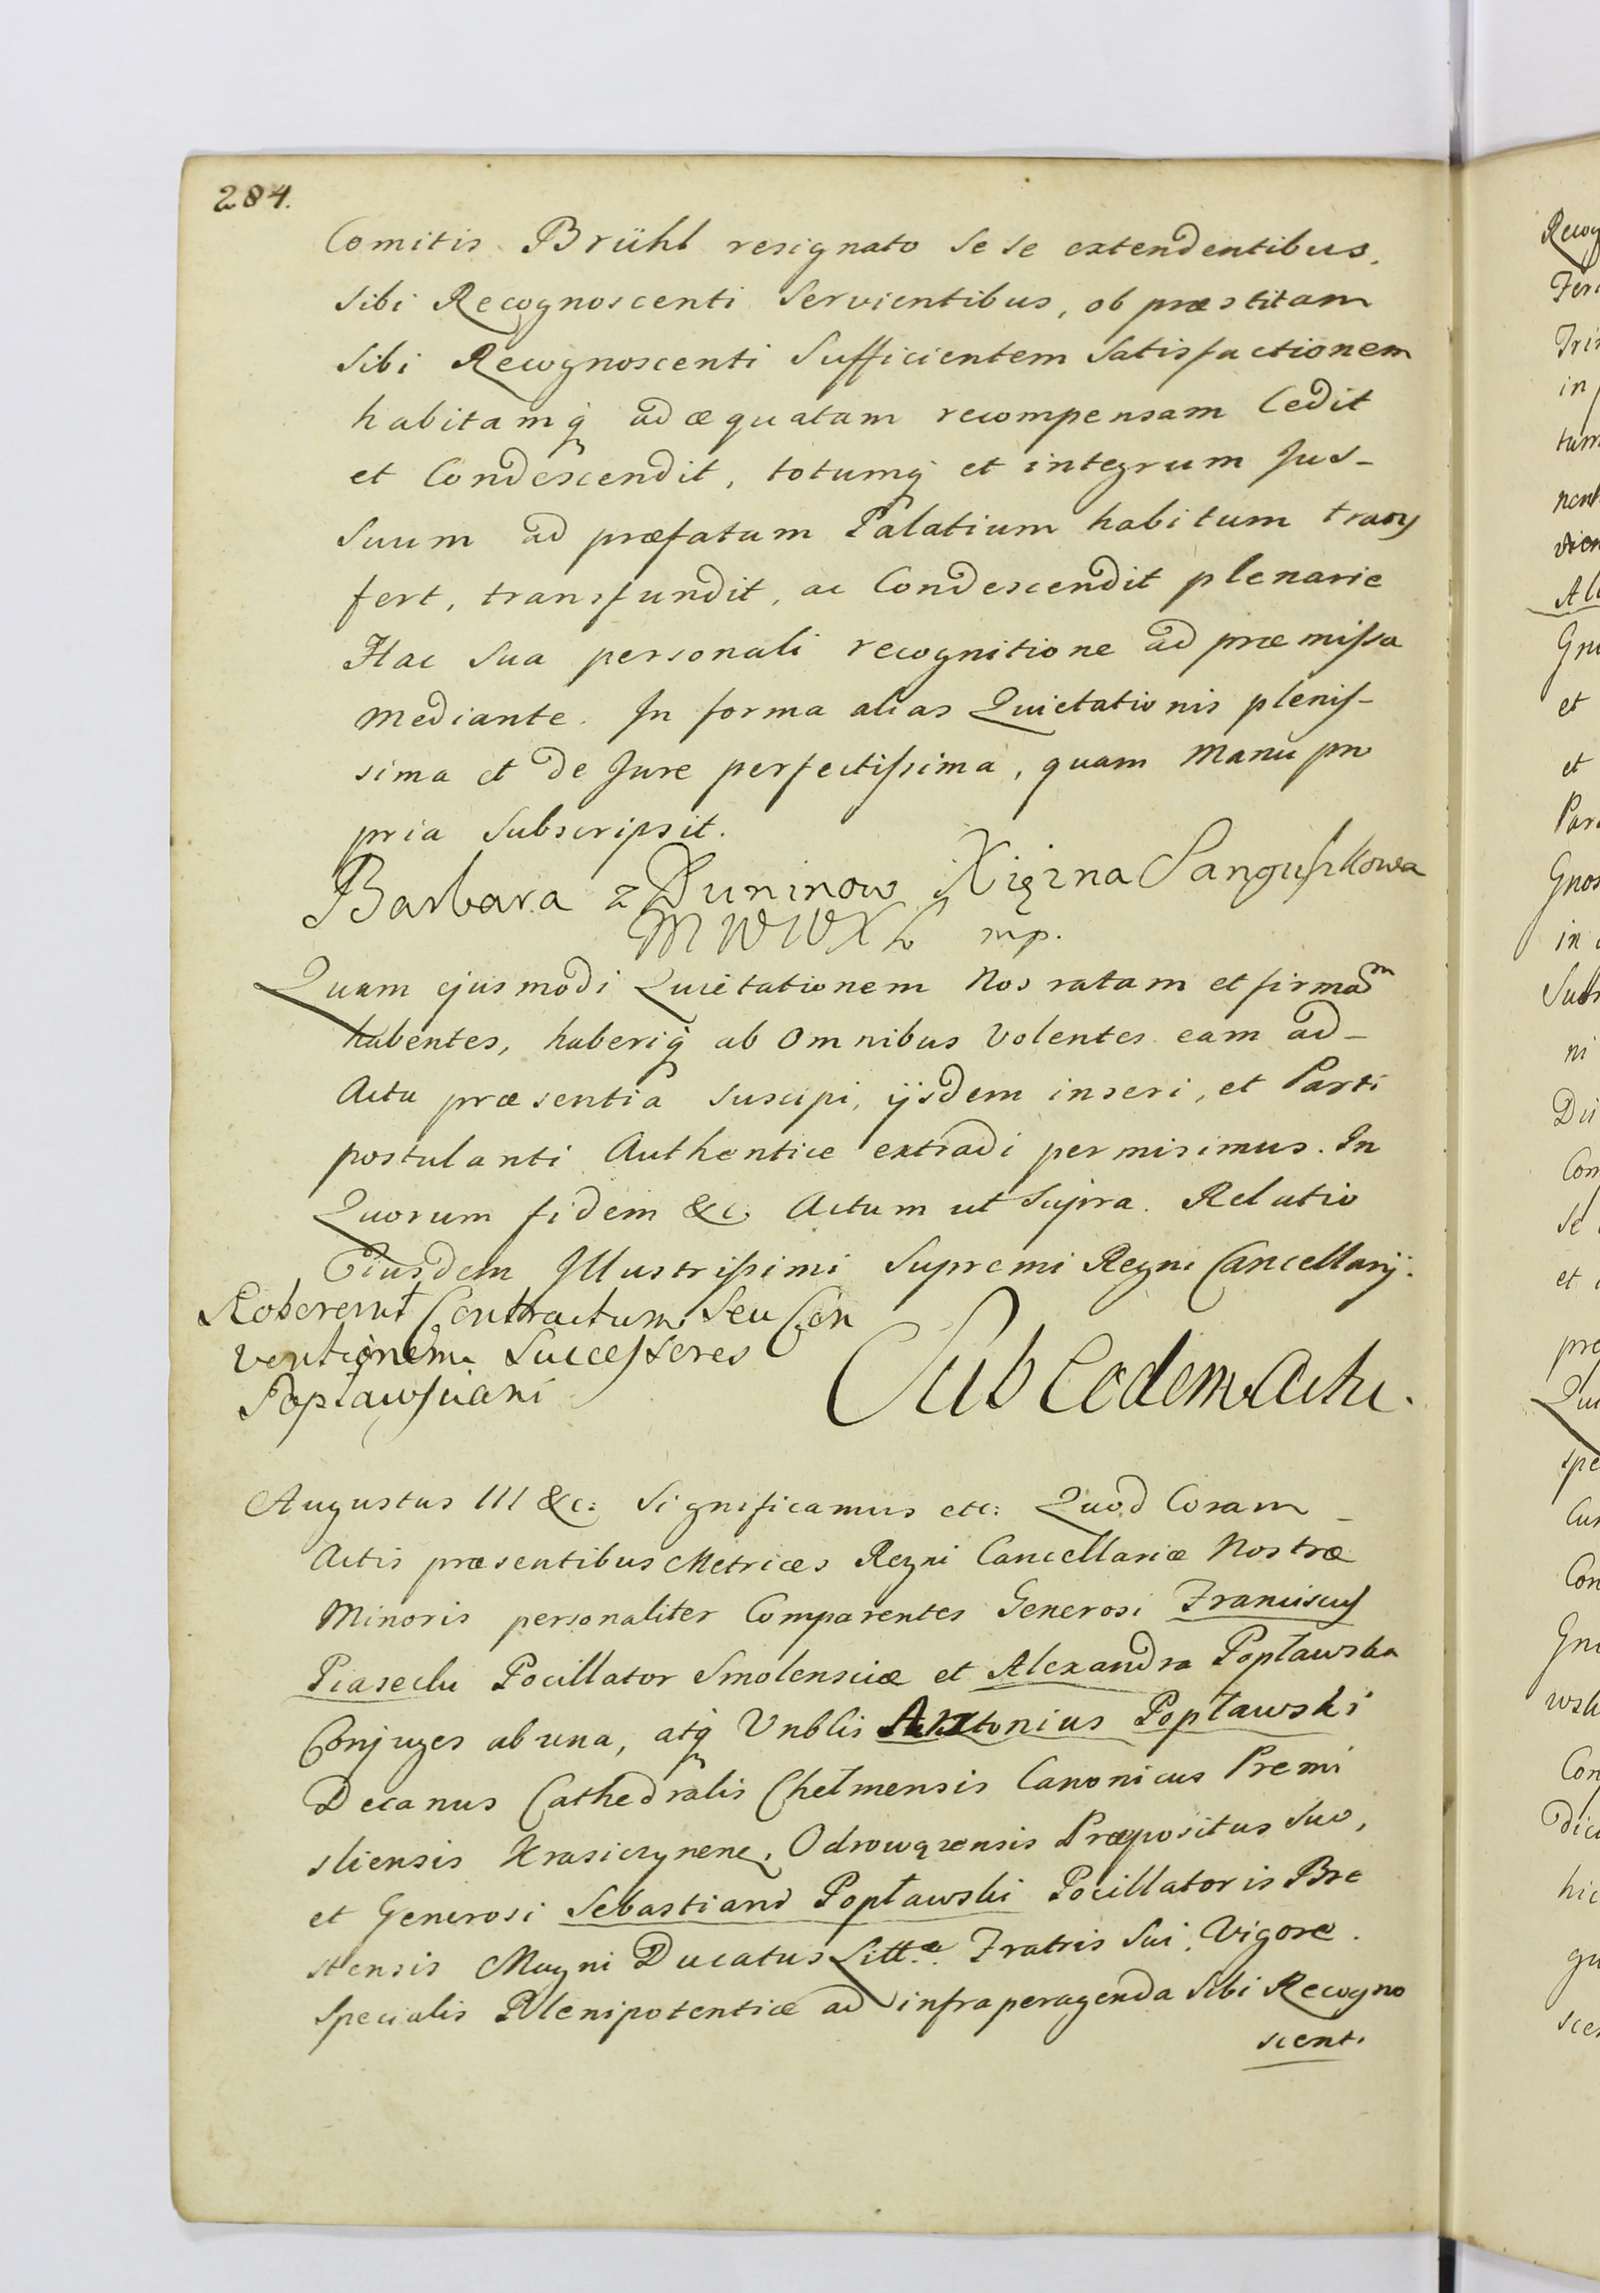 284.
Comitis Brühl resignato se se extendentibus,
sibi Recognoscenti Servientibus, ob præstitam
sibi Recognoscenti Sufficientem Satisfactionem
habitamq̨ adæquatam recompensam Cedit
et Condescendit, totumq̨ et integrum Jus-
suum ad præfatum Palatium habitum trans
fert, transfundit, ac Condescendit plenarie
Hac sua personali recognitione ad præmissa
mediante. In forma alias Quietationis plenis-
sima et de Jure perfectissima, quam Manu pro
pria Subscripsit.
Barbara z Duninow Xiężna Sanguszkowa
M W W X L mp.
Quam ejusmodi Quietationem Nos ratam et firmam
habentes, haberiq̨ ab omnibus Volentes eam ad-
Acta præsentia suscipi, ijsdem inseri, et Parti
postulanti Authentice extradi permisimus. In
Quorum fidem &c. Actum ut Supra. Relatio
Ejusdem Illustrissimi Supremi Regni Cancellarij.
Roborerunt Contractum Seu Con
ventionem Successores
Popławsciani
Sub Eodem Actu.
Augustus III &c: Significamus etc: Quod Coram
Actis præsentibus Metrices Regni Cancellariæ Nostræ
Minoris personaliter Comparentes Generosi Franciscus
Piasecki Pocillator Smolensciæ et Alexandra Popławska
Conjuges ab una, atq̨ Vnblis Antonius Popławski
Decanus Cathedralis Chełmensis Canonicus Premi
sliensis Krasiczynen, Odrowązensis Præpositus suo,
et Generosi Sebastiani Popławski Pocillatoris Bre
stensis Magni Ducatus Litt.æ Fratris sui, Vigore
Specialis Plenipotentiæ ad infra peragenda sibi Recogno
scent.